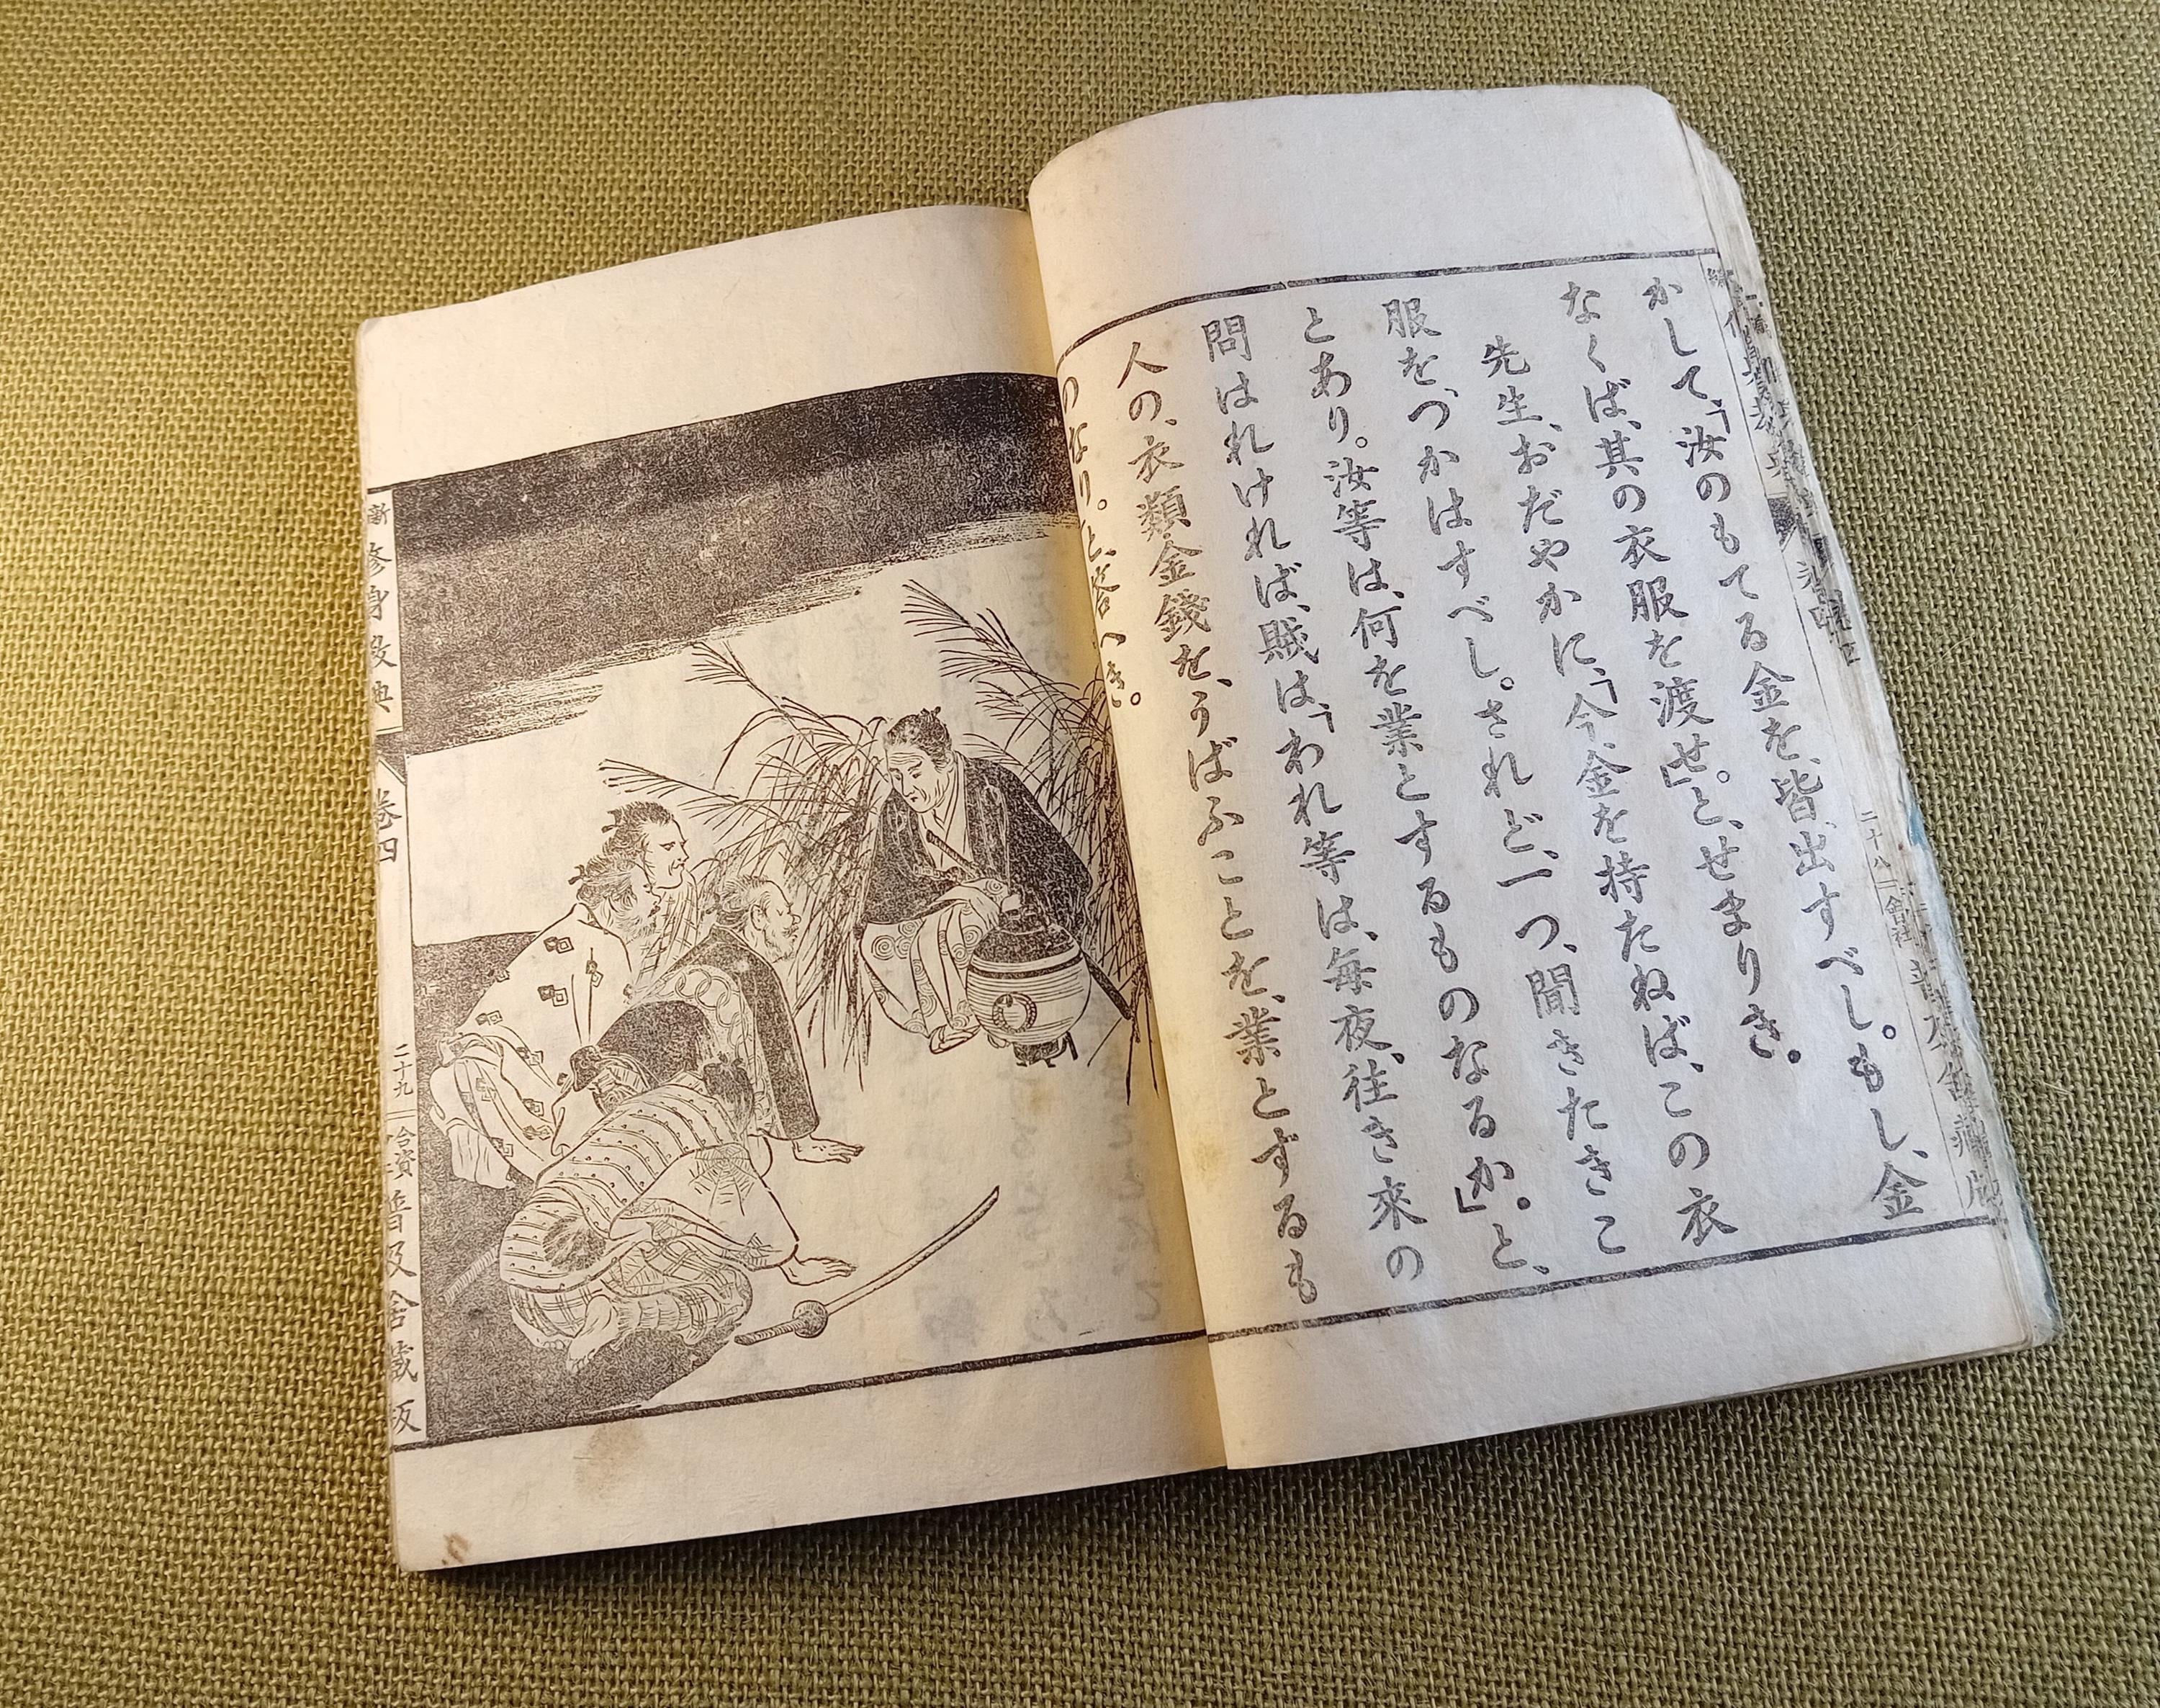 かして、「汝のもてる金を、皆出すべし。もし、金
なくば、其の衣服を渡せ。」と、せまりき。
先生、おだやかに、「今金を持たねば、この衣
服を、つかはすべし。されど、一つ、聞きたきこ
とあり。汝等は、何を業とするものなるか。」と、
問はれければ、賊は、「われ等は、毎夜、往き來の
人の、衣類金錢を、うばふことを、業とするも
のなり。と、答へき。
新修身教典
卷四
二十九
合資
會社
普及舎藏版
二十八